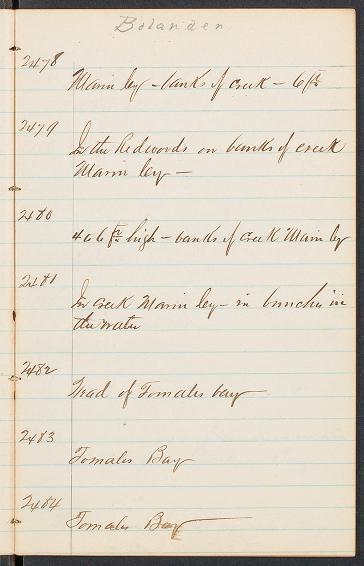 Bolander
2478
Marin Co, - banks of creek - 6 ft
2479
In the Redwoods on banks of creek
Marin Co, -
2480
4 to 6 ft high - banks of creek Marin Co
2481
In creek Marin Co, - in bunches in
the water
2482
Head of Tomales bay
2483
Tomales Bay
2484
Tomales Bay